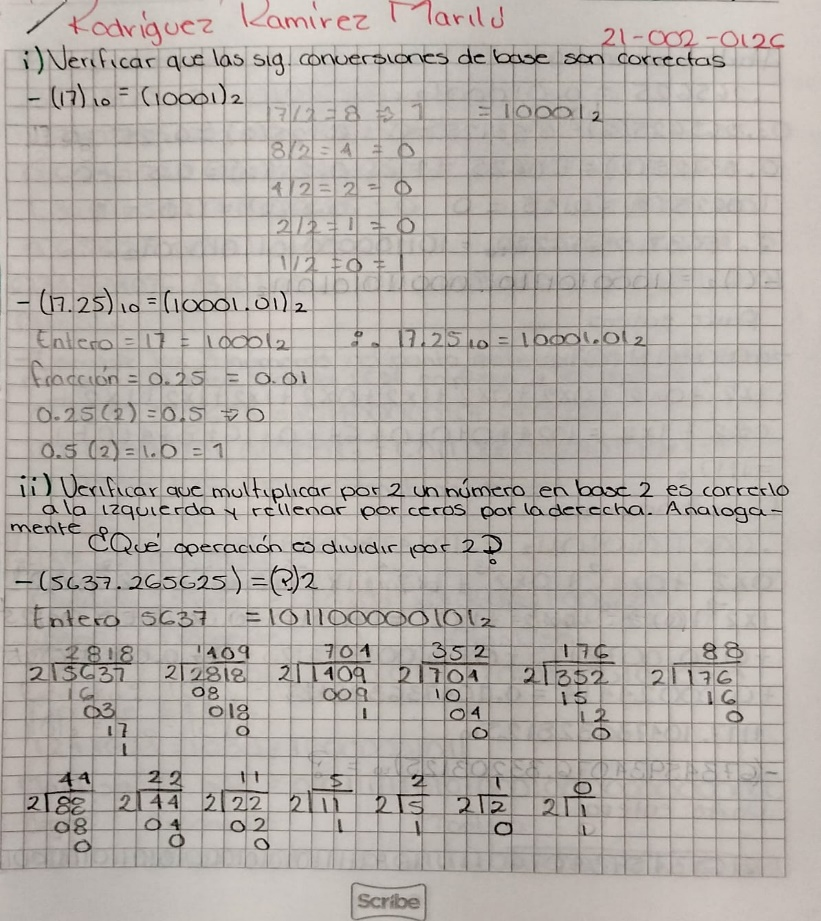 Rodríguez Ramírez Marilú
21-002-0126
i) Verificar que las sig. conversiones de base son correctas
- (17)10 = (10001)2
17/2 = 8 ⇒ 1 = 100012
8/2 = 4 = 0
4/2 = 2 = 0
2/2 = 1 = 0
1/2 = 0 = 1
- (17.25)10 = (10001.01)2
Entero = 17 = 100012 ∴ 17.2510 = 10001.012
fracción = 0.25 = 0.01
0.25(2) = 0.5 ⇒ 0
0.5 (2) = 1.0 = 1
ii) Verificar que multiplicar por 2 un número en base 2 es correrlo
a la izquierda y rellenar por ceros por la derecha. Analoga-
mente
¿Qué operación es dividir por 2?
- (5637.265625) = (?)2
Entero 5637 = 10110000001012
2818 1409 704 352 176 88
2 5637 2 2818 2 1409 2 704 2 352 2 176
16 08 009 10 15 16
03 018 1 04 12 0
17 0 0 0
1
44 22 11 5 2 1 0
2 88 2 44 2 22 2 11 2 5 2 2 2 1
08 04 02 1 1 0 1
0 0 0
Scribe